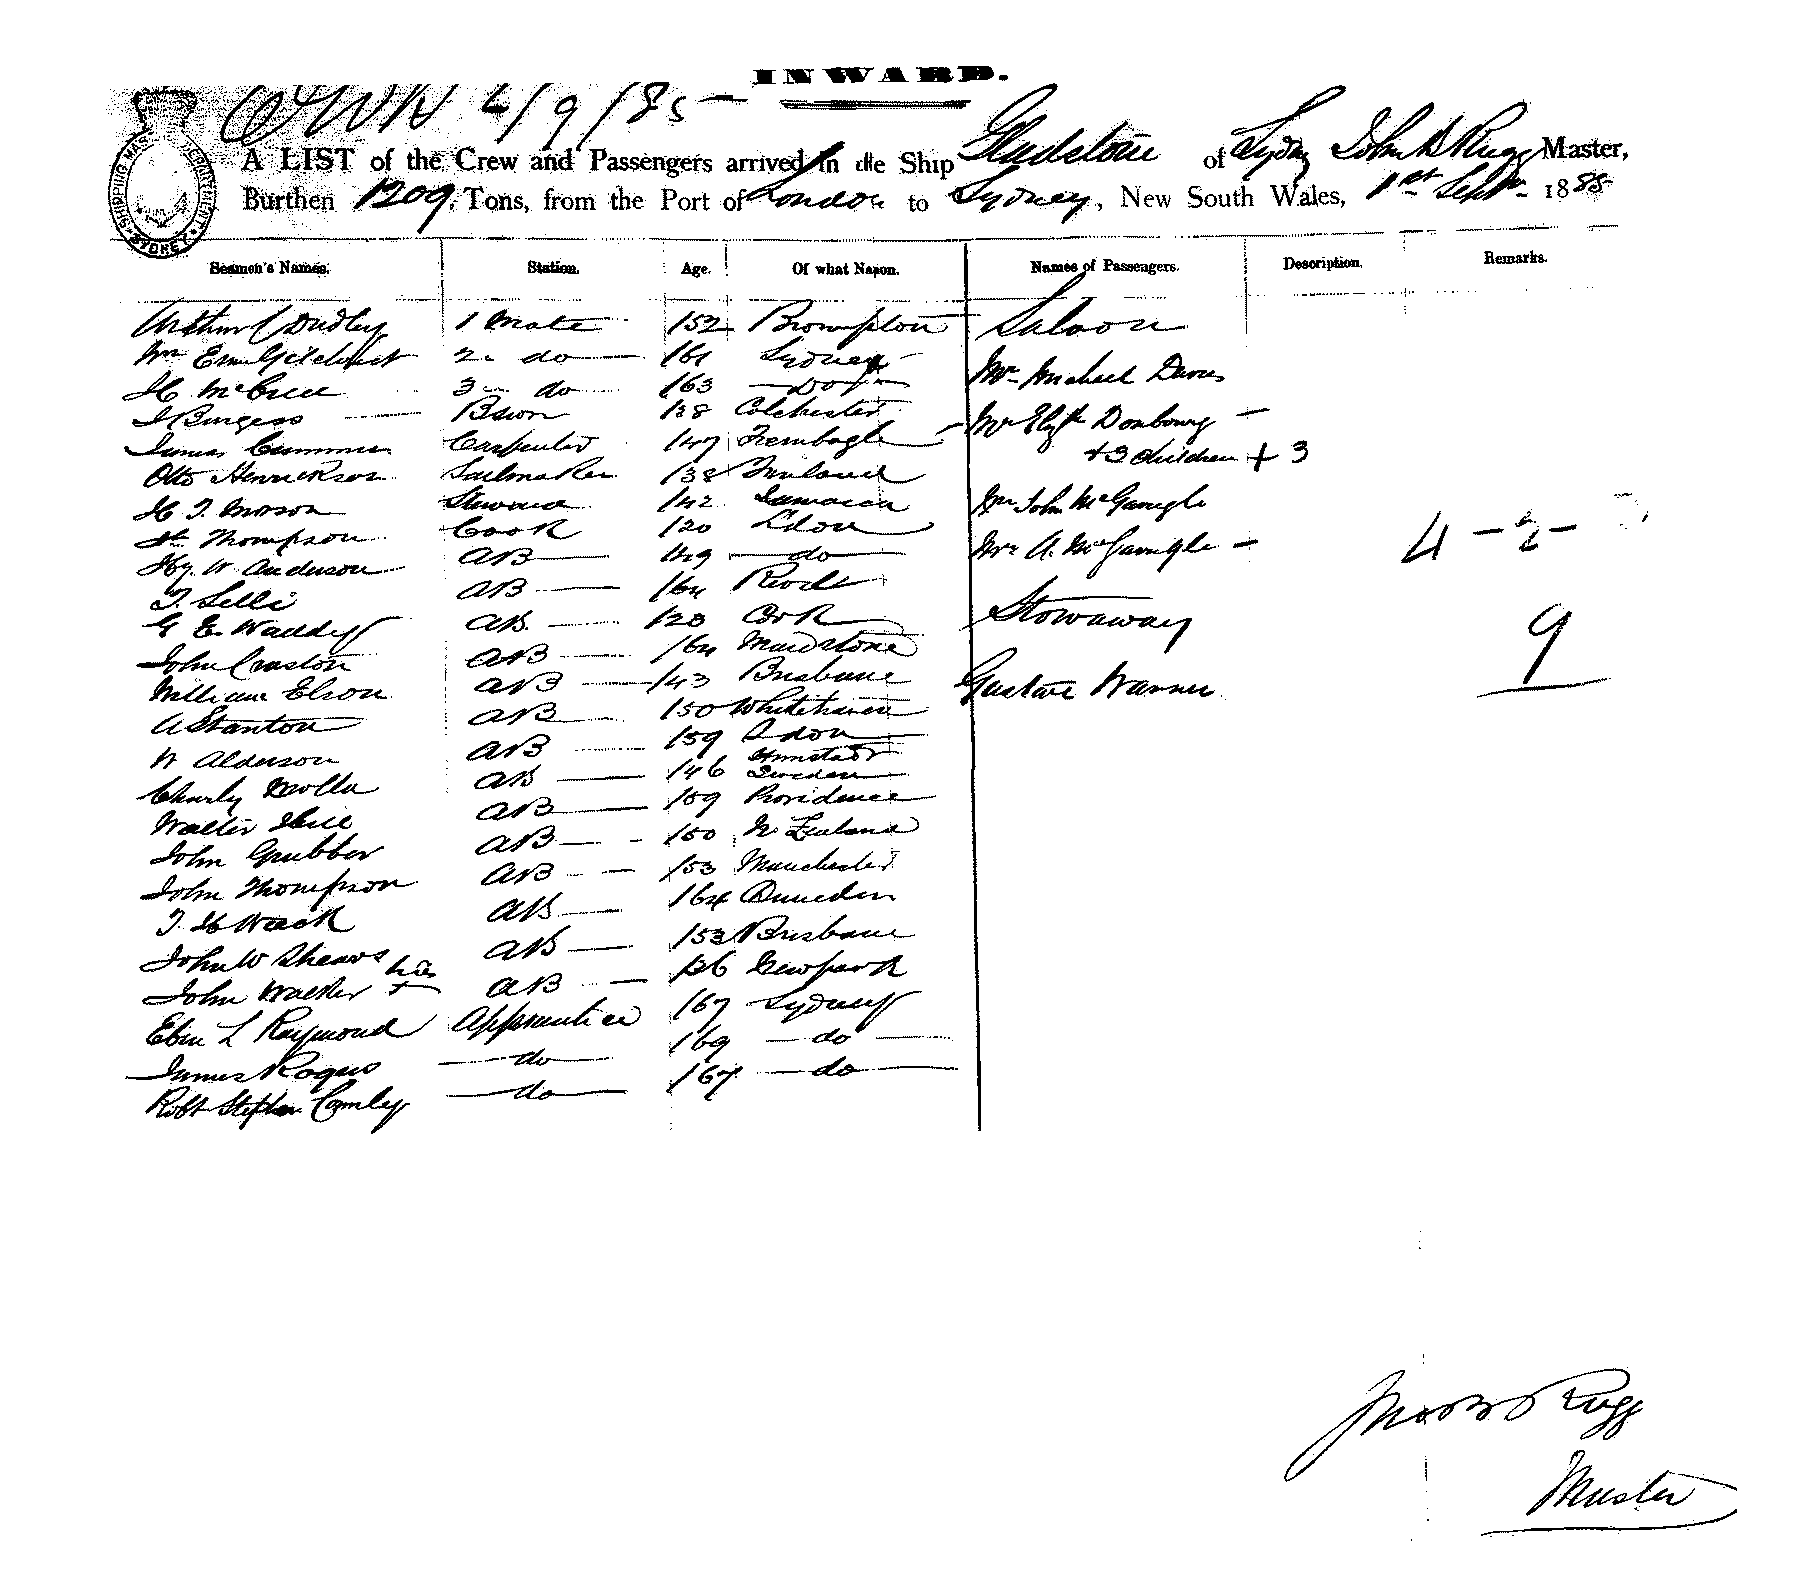 INWARD.
6/9/85
A LIST of the Crew and Passengers arrived in the Ship Gladstone of Sydney John D Rugg Master,
Burthen 1209 Tons, from the Port of London to Sydney, New South Wales, 1st Septr 1885
SHIPPING MASTER'S OFFICE SYDNEY
Seamen's Names. Station. Age. Of what Nation. Names of Passengers. Description. Remarks.
Arthur C Dudley 1 Mate 152 Brompton Saloon
Wm Gilchrist 2 do 161 Sydney
H McCree 3 do 163 do Mr Michael Davis
J Burgess Bswn 138 Colchester
James Cummin Carpenter 147 Mrs Elizth Donbourg
Otto Henrickson Sailmaker 138 Finland +3 children + 3
H J Moson Steward 142 Jamaica Mr John McGanigle
Thompson Cook 120 Ldon
Hy. W. Anderson AB 149 do Mrs A. McGanigle 4 - 2 -
T. Selli AB 164
G E. Waddy AB 123 Cork Stowaway 9
John Craston AB 164 Maidstone
William Elson AB 143 Brisbane Gustave Warner
A Stanton AB 150 Whitehaven
W Alderson AB 159 Ldon
Charly Molla AB 146 Sweden
Walter Hill AB 159 Providence
John Grubber AB 150 N Zealand
John Thompson AB 153 Manchester
T. H Wack AB 164 Dunedin
John W Shears AB 153 Brisbane
John Walker his + AB 136 Newpark
Eben L Raymond Apprentice 167 Sydney
James Rogers do 169 do
Robt Stephen Comley do 167 do
Jno D Rugg
Master